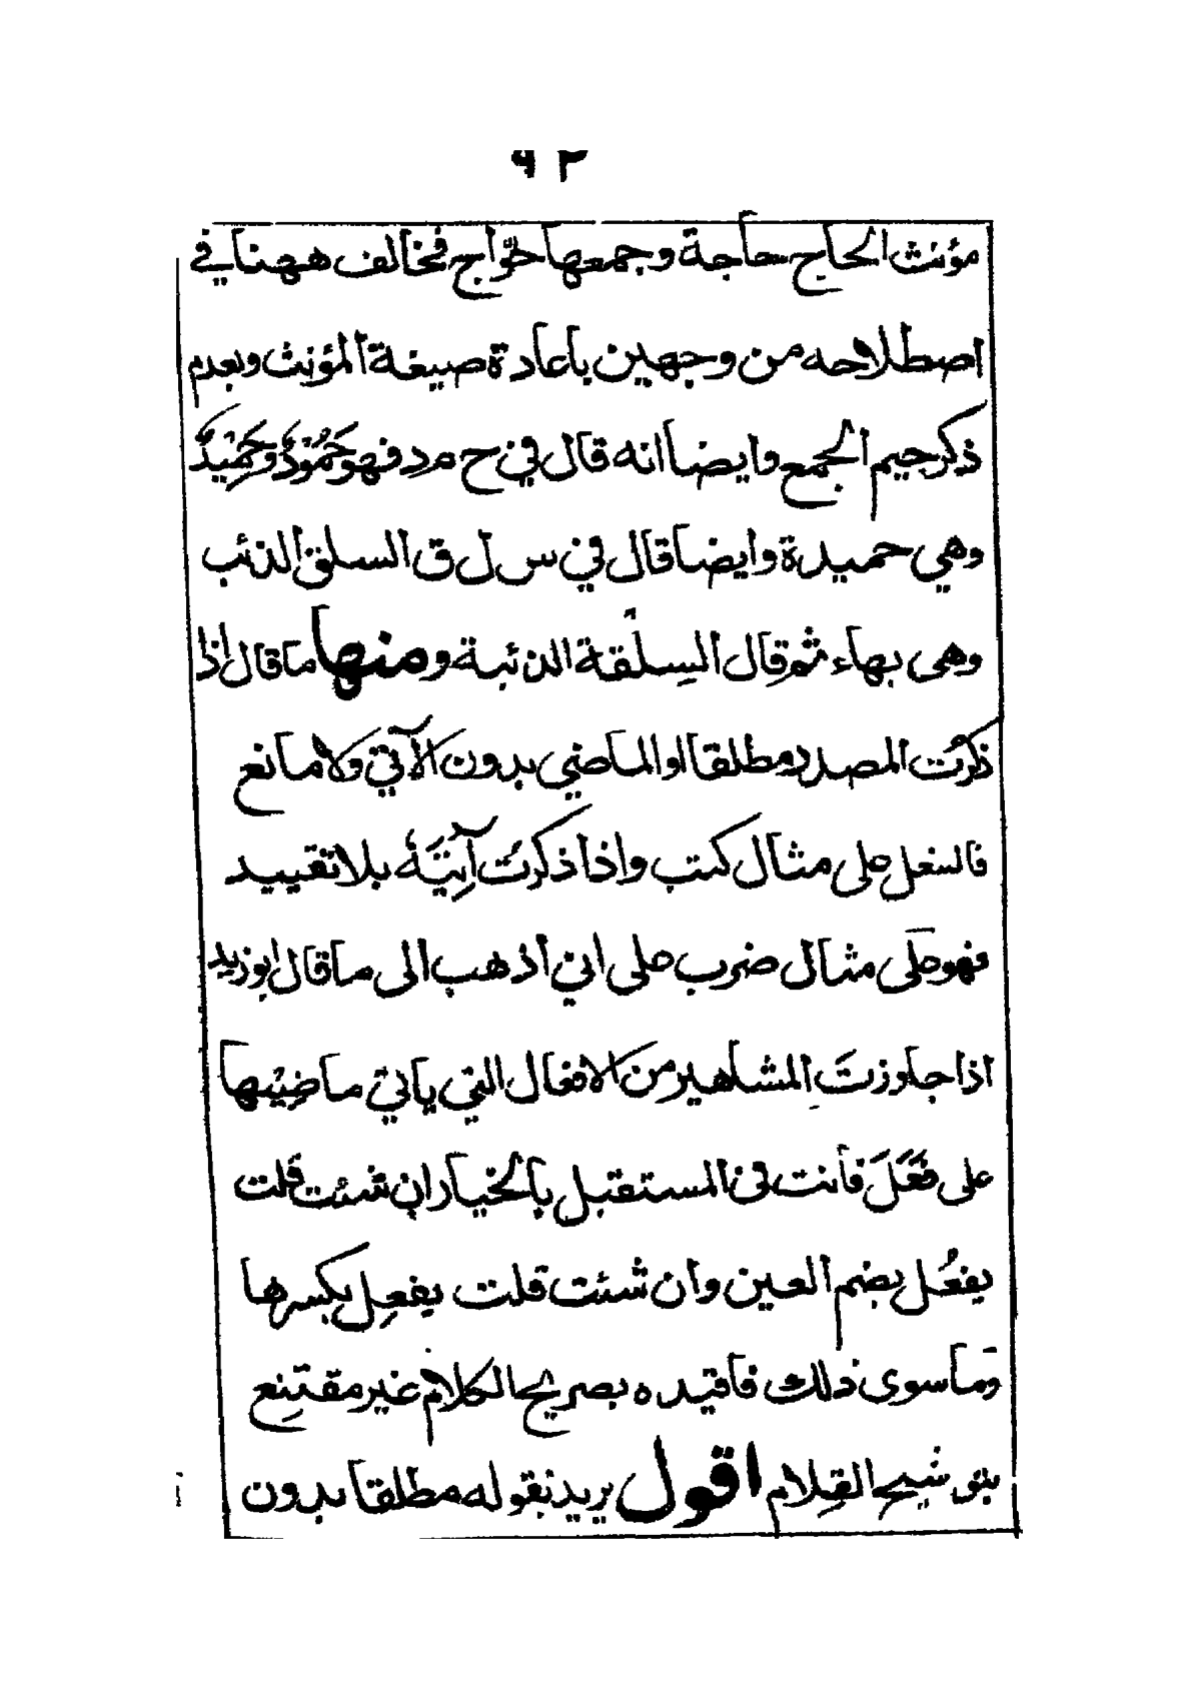 ٦٢
مؤنث الحاج حاجة وجمعها حوّاج فخالف ههنا في
اصطلاحه من وجهين باعادة صيغة المؤنث وبعدم
ذكر جيم الجمع وايضا انه قال في ح م د فهو حَمُودٌ وحَمِيدٌ
وهي حميدة وايضا قال في س ل ق السلق الذئب
وهى بهاء ثم قال السِلْقة الذئبة ومنها ما قال اذا
ذكرت المصدر مطلقا او الماضي بدون الآتي ولا مانع
فالفعل على مثال كتب واذا ذكرت آتِيَهُ بلا تقييد
فهو على مثال ضرب على اني اذهب الى ما قال ابو زيد
اذا جاوزتَ المشاهير من الافعال التي ياتي ماضيها
على فَعَلَ فانت في المستقبل بالخيار ان شئت قلت
يفعُل بضم العين وان شئت قلت يفعِل بكسرها
وما سوى ذلك فاقيده بصريح الكلام غير مقتنِع
بتوشيح القِلام اقول يريد بقوله مطلقا بدون